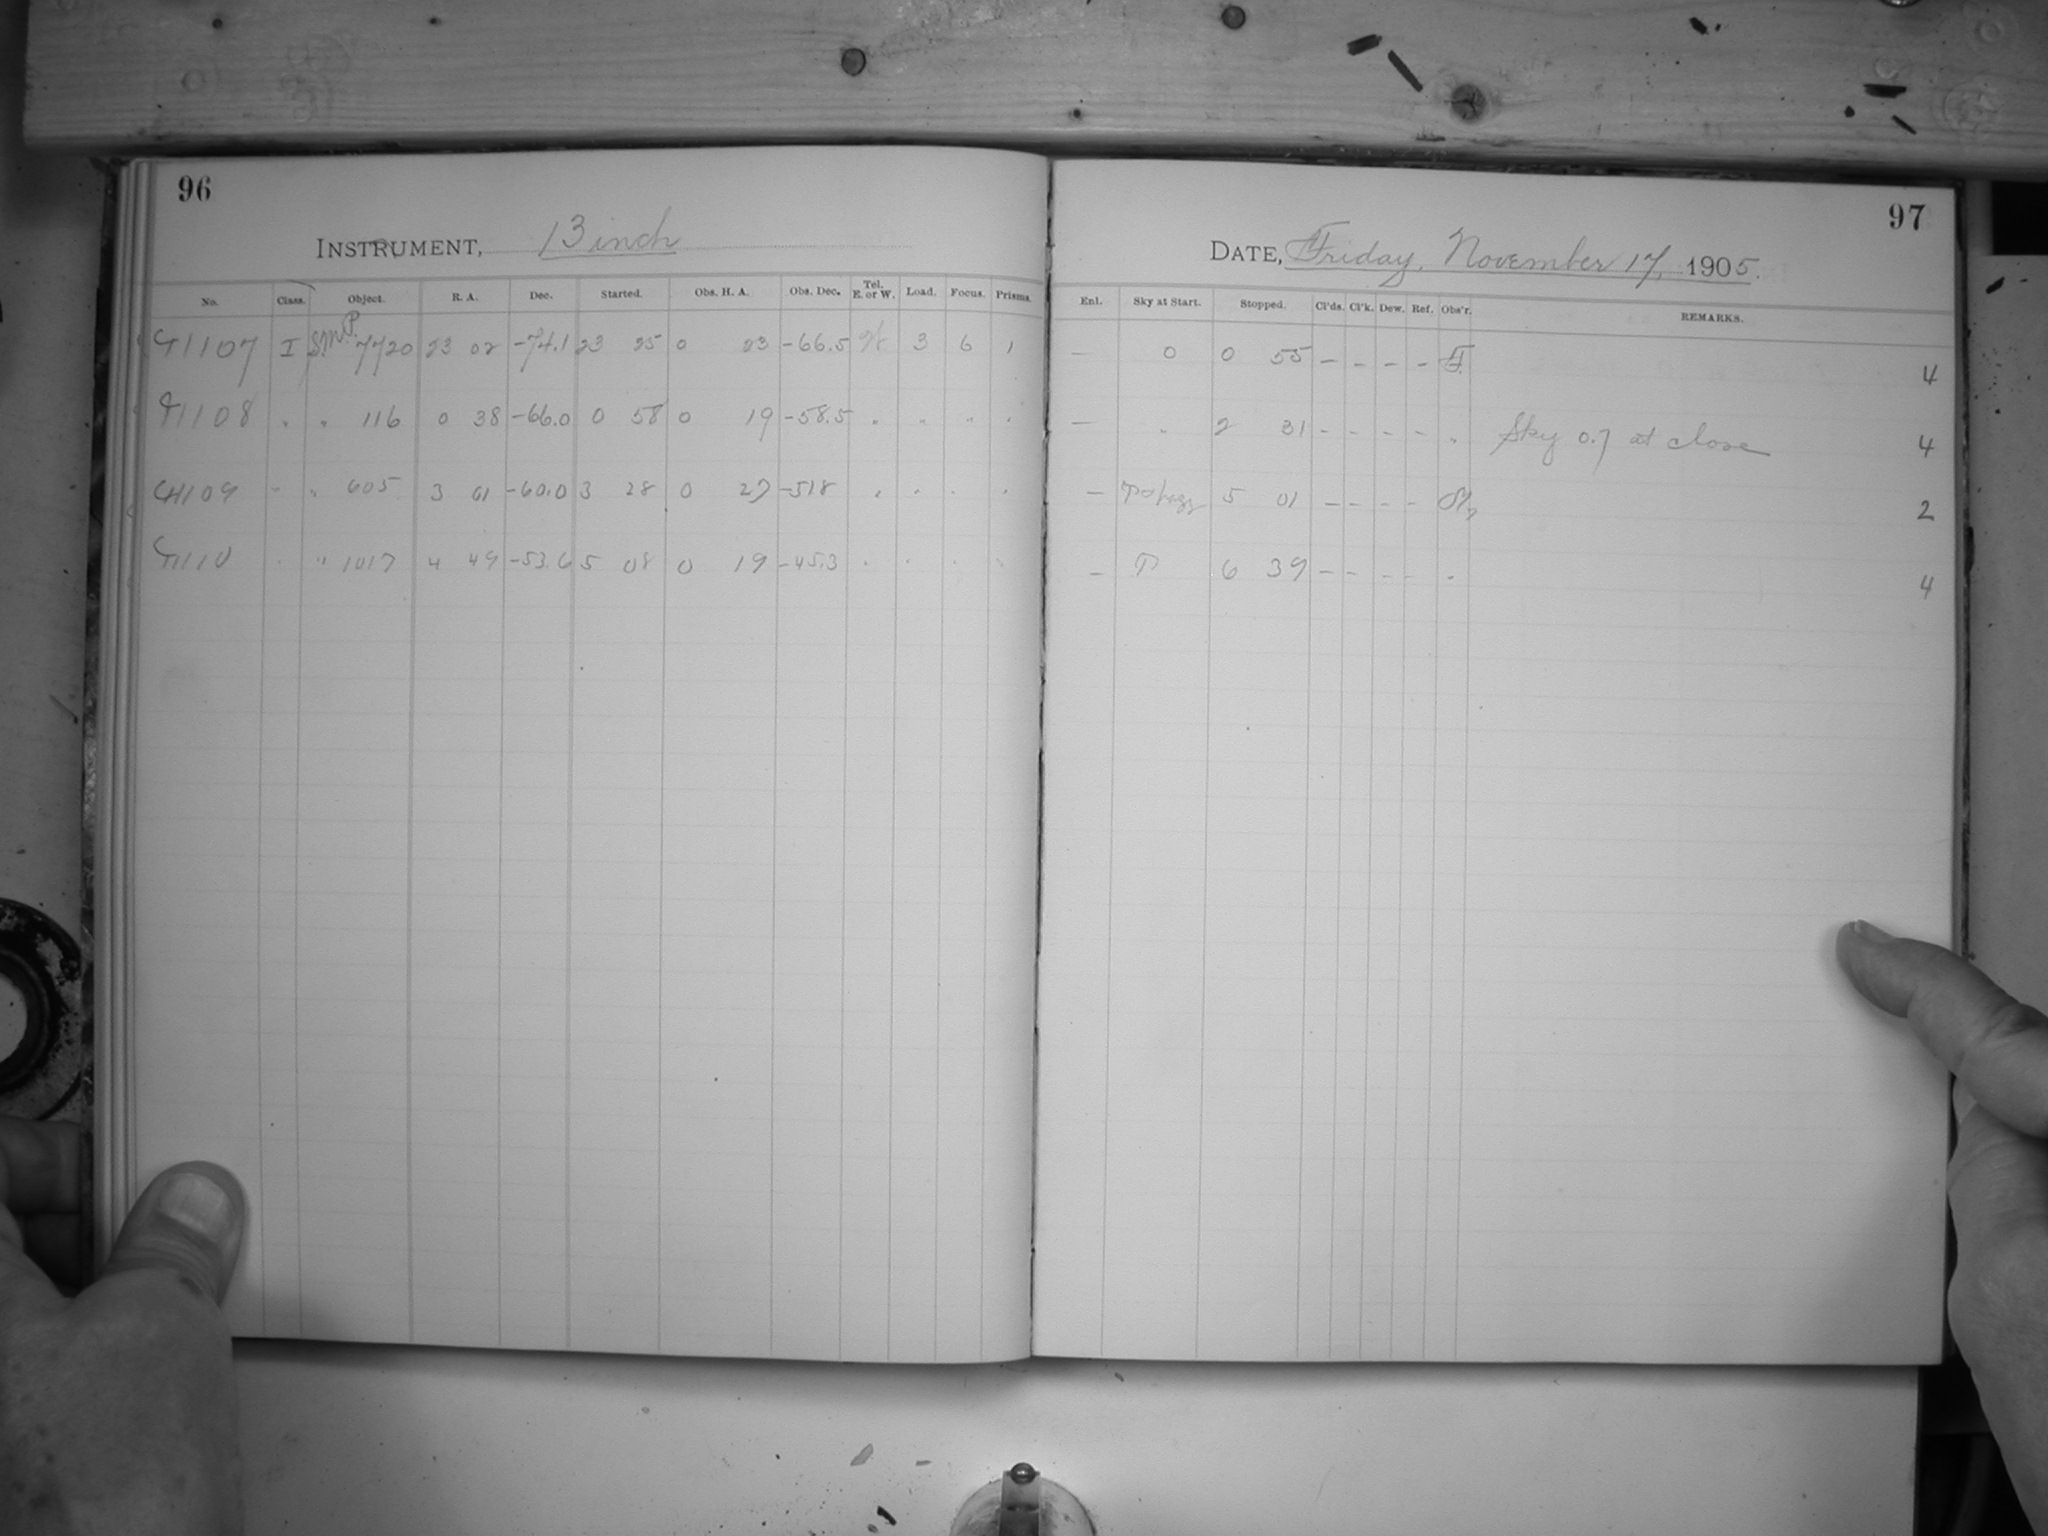 96
INSTRUMENT, 13 inch
No. Class. Object. R. A. Dec. Started. Obs. H. A. Obs. Dec. Tel. E. or W. Load. Focus. Prisms.
11107 I 7720 23 02 -74.1 23 25 0 23 -66.5 W 3 6 1
11108 " " 116 0 38 -66.0 0 58 0 19 -58.5 " " " "
11109 " " 605 3 01 -60.0 3 28 0 27 -51.8 " " " "
11110 " " 1017 4 49 -53.6 5 08 0 19 -45.3 " " " "
97
DATE, Friday, November 17, 1905.
Enl. Sky at Start. Stopped. Cl'ds. Cl'k. Dew. Ref. Obs'r. REMARKS.
— 0 0 55 – – – – F. 4
— " 2 31 – – – – " Sky 0.7 at close 4
— 5 01 – – – – 2
– 6 39 – – – – " 4